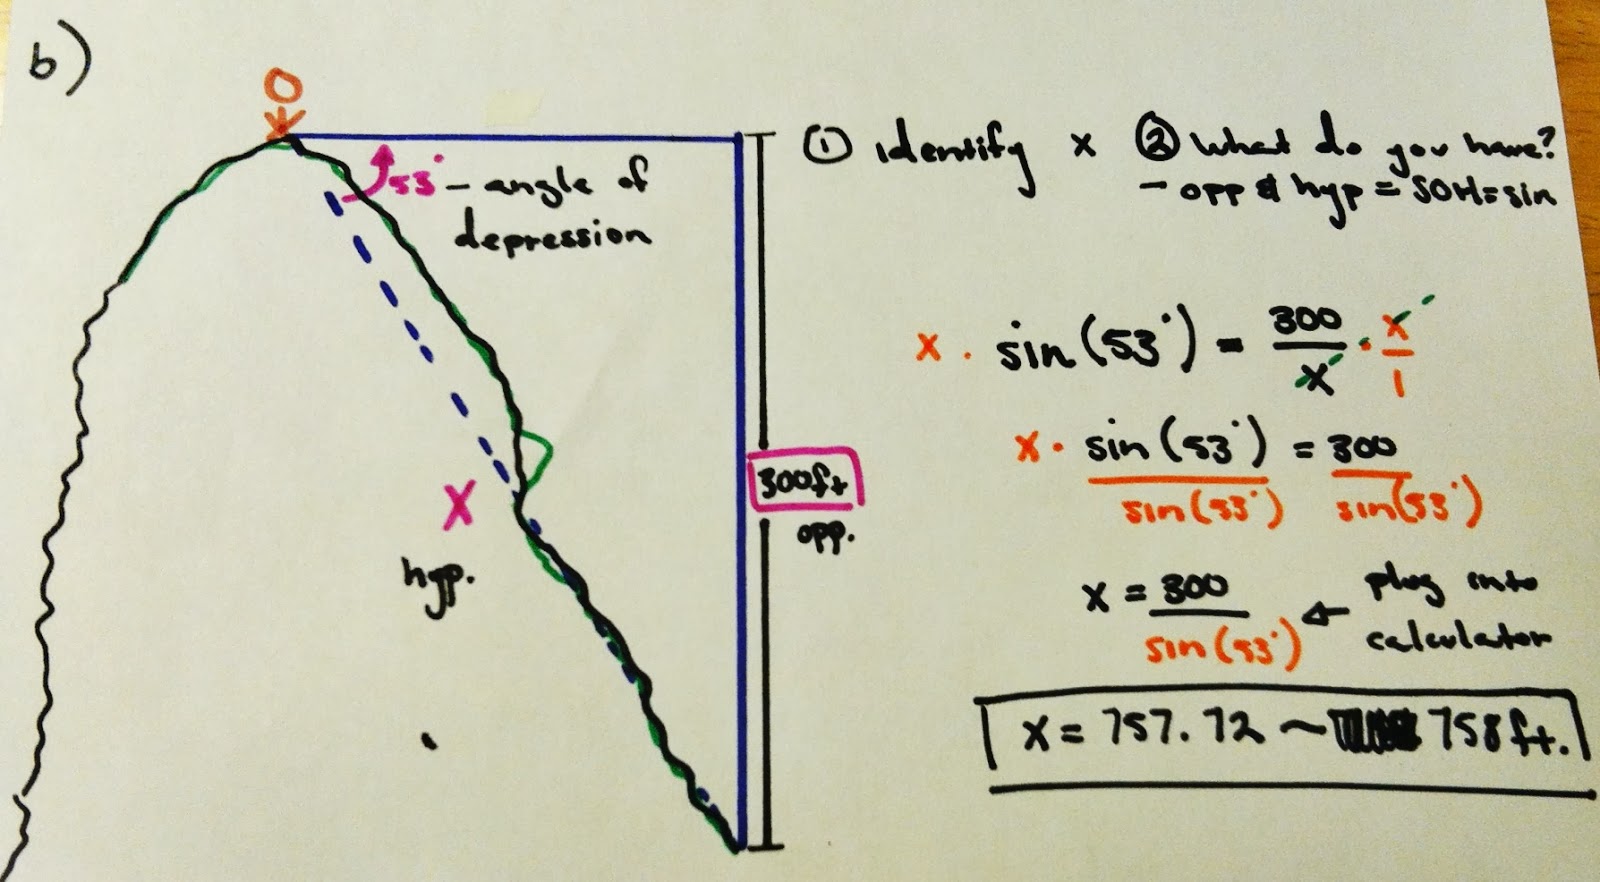 b)
53° - angle of
depression
X
hyp.
300ft
opp.
① identify x
② What do you have?
- opp & hyp = SOH = sin
x · sin(53°) = 300/x · x/1
x · sin(53°)/sin(53°) = 300/sin(53°)
x = 300/sin(53°) ← plug into
calculator
x = 757.72 ~ 758ft.